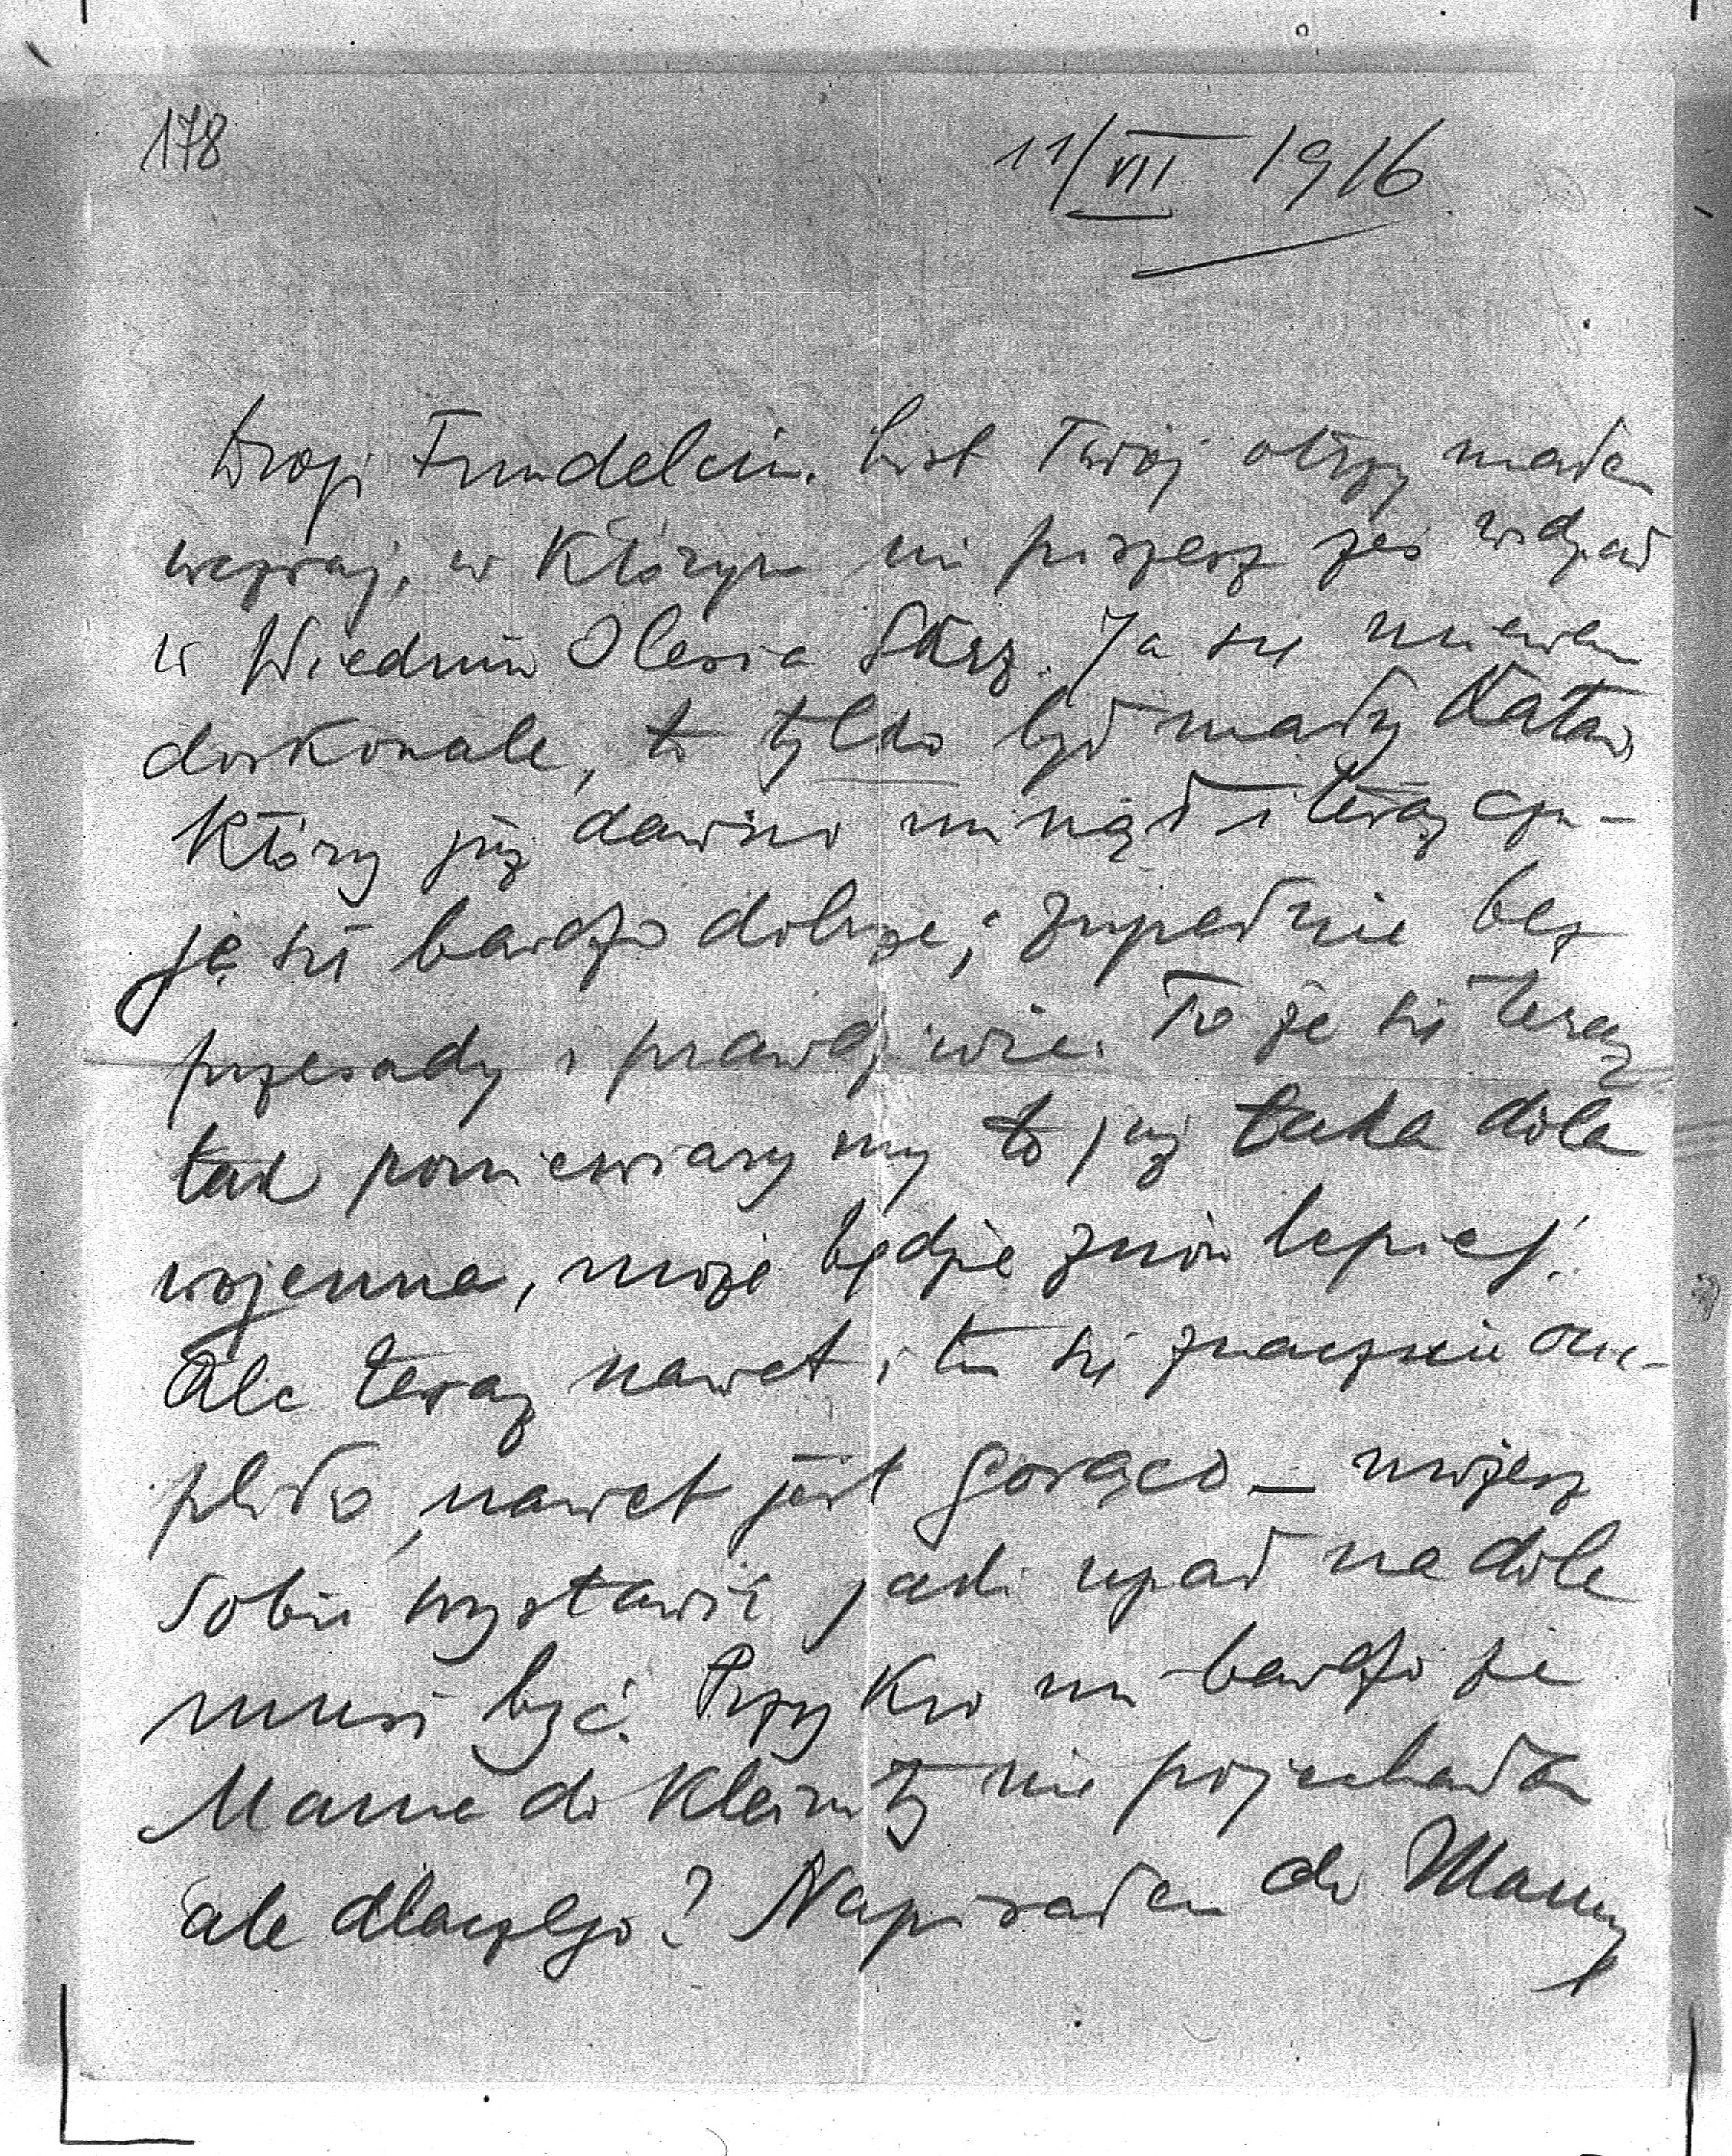 178
11/VII 1916
Drogi Frundelciu. List Twój otrzymałem
wczoraj, w którym mi piszesz żeś widział
w Wiedniu Olesia Skrz. Ja się miewam
doskonale, to tylko był mały Katar,
który już dawno minął i teraz czu-
ję się bardzo dobrze; zupełnie bez
przesady i prawdziwie. To że się teraz
tak poniewieramy to już taka dola
wojenna, może będzie znów lepiej.
Ale teraz nawet i tu się znacznie ocie-
pliło, nawet jest gorąco – możesz
sobie wystawić jaki upał na dole
musi być. Przykro mi bardzo że
Mama do Kleinitz nie pojechała
ale dlaczego? Napisałem do Mamy